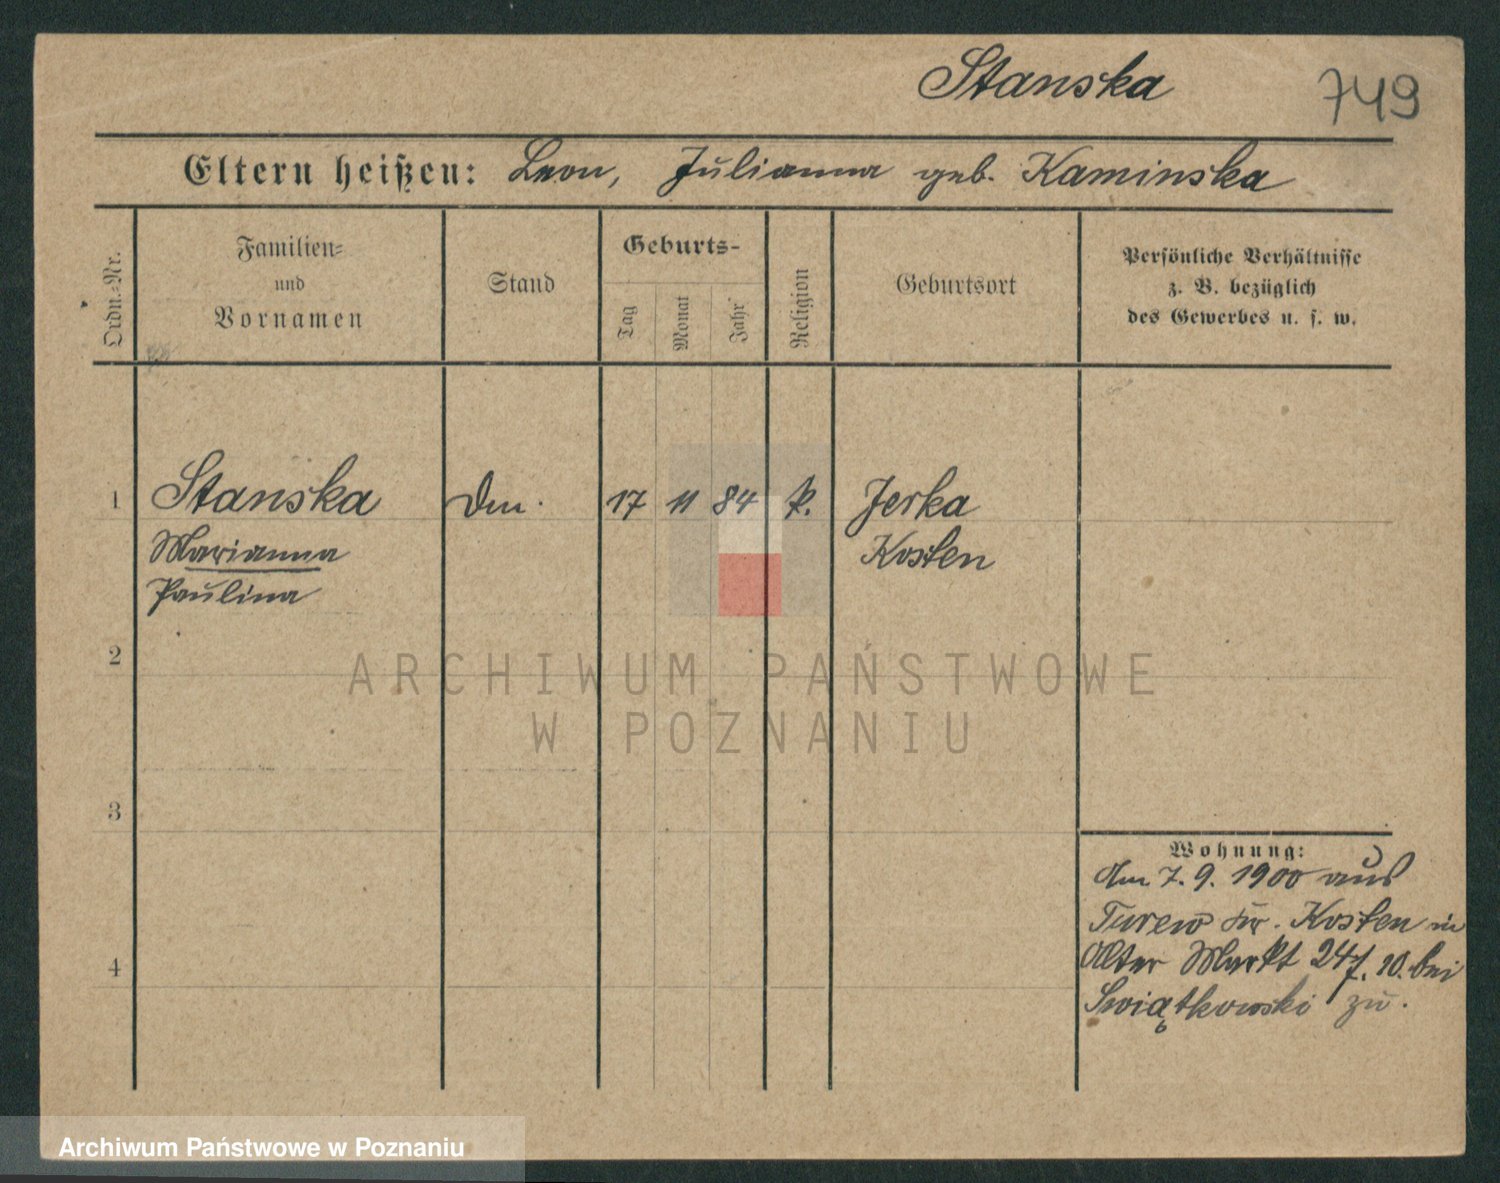 Stanska
749
Eltern heißen: Leon, Julianna geb. Kaminska
Ordn.-Nr.
Familien- und Vornamen
Stand
Geburts-
Tag
Monat
Jahr
Religion
Geburtsort
Persönliche Verhältnisse
z. B. bezüglich
des Gewerbes u. s. w.
1 Stanska 17 11 84 k. Jerka
Marianna Kosten
Paulina
2
3
4
Wohnung:
Am 7. 9. 1900 aus
Turew Kr. Kosten in
Alter Markt 24 bei
Świątkowski zu.
ARCHIWUM PAŃSTWOWE
W POZNANIU
Archiwum Państwowe w Poznaniu